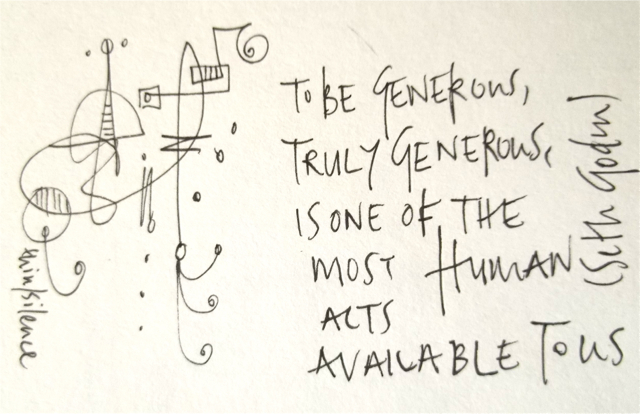 TO BE GENEROUS,
TRULY GENEROUS,
IS ONE OF THE
MOST HUMAN
ACTS
AVAILABLE TO US
(Seth Godin)
thin/silence